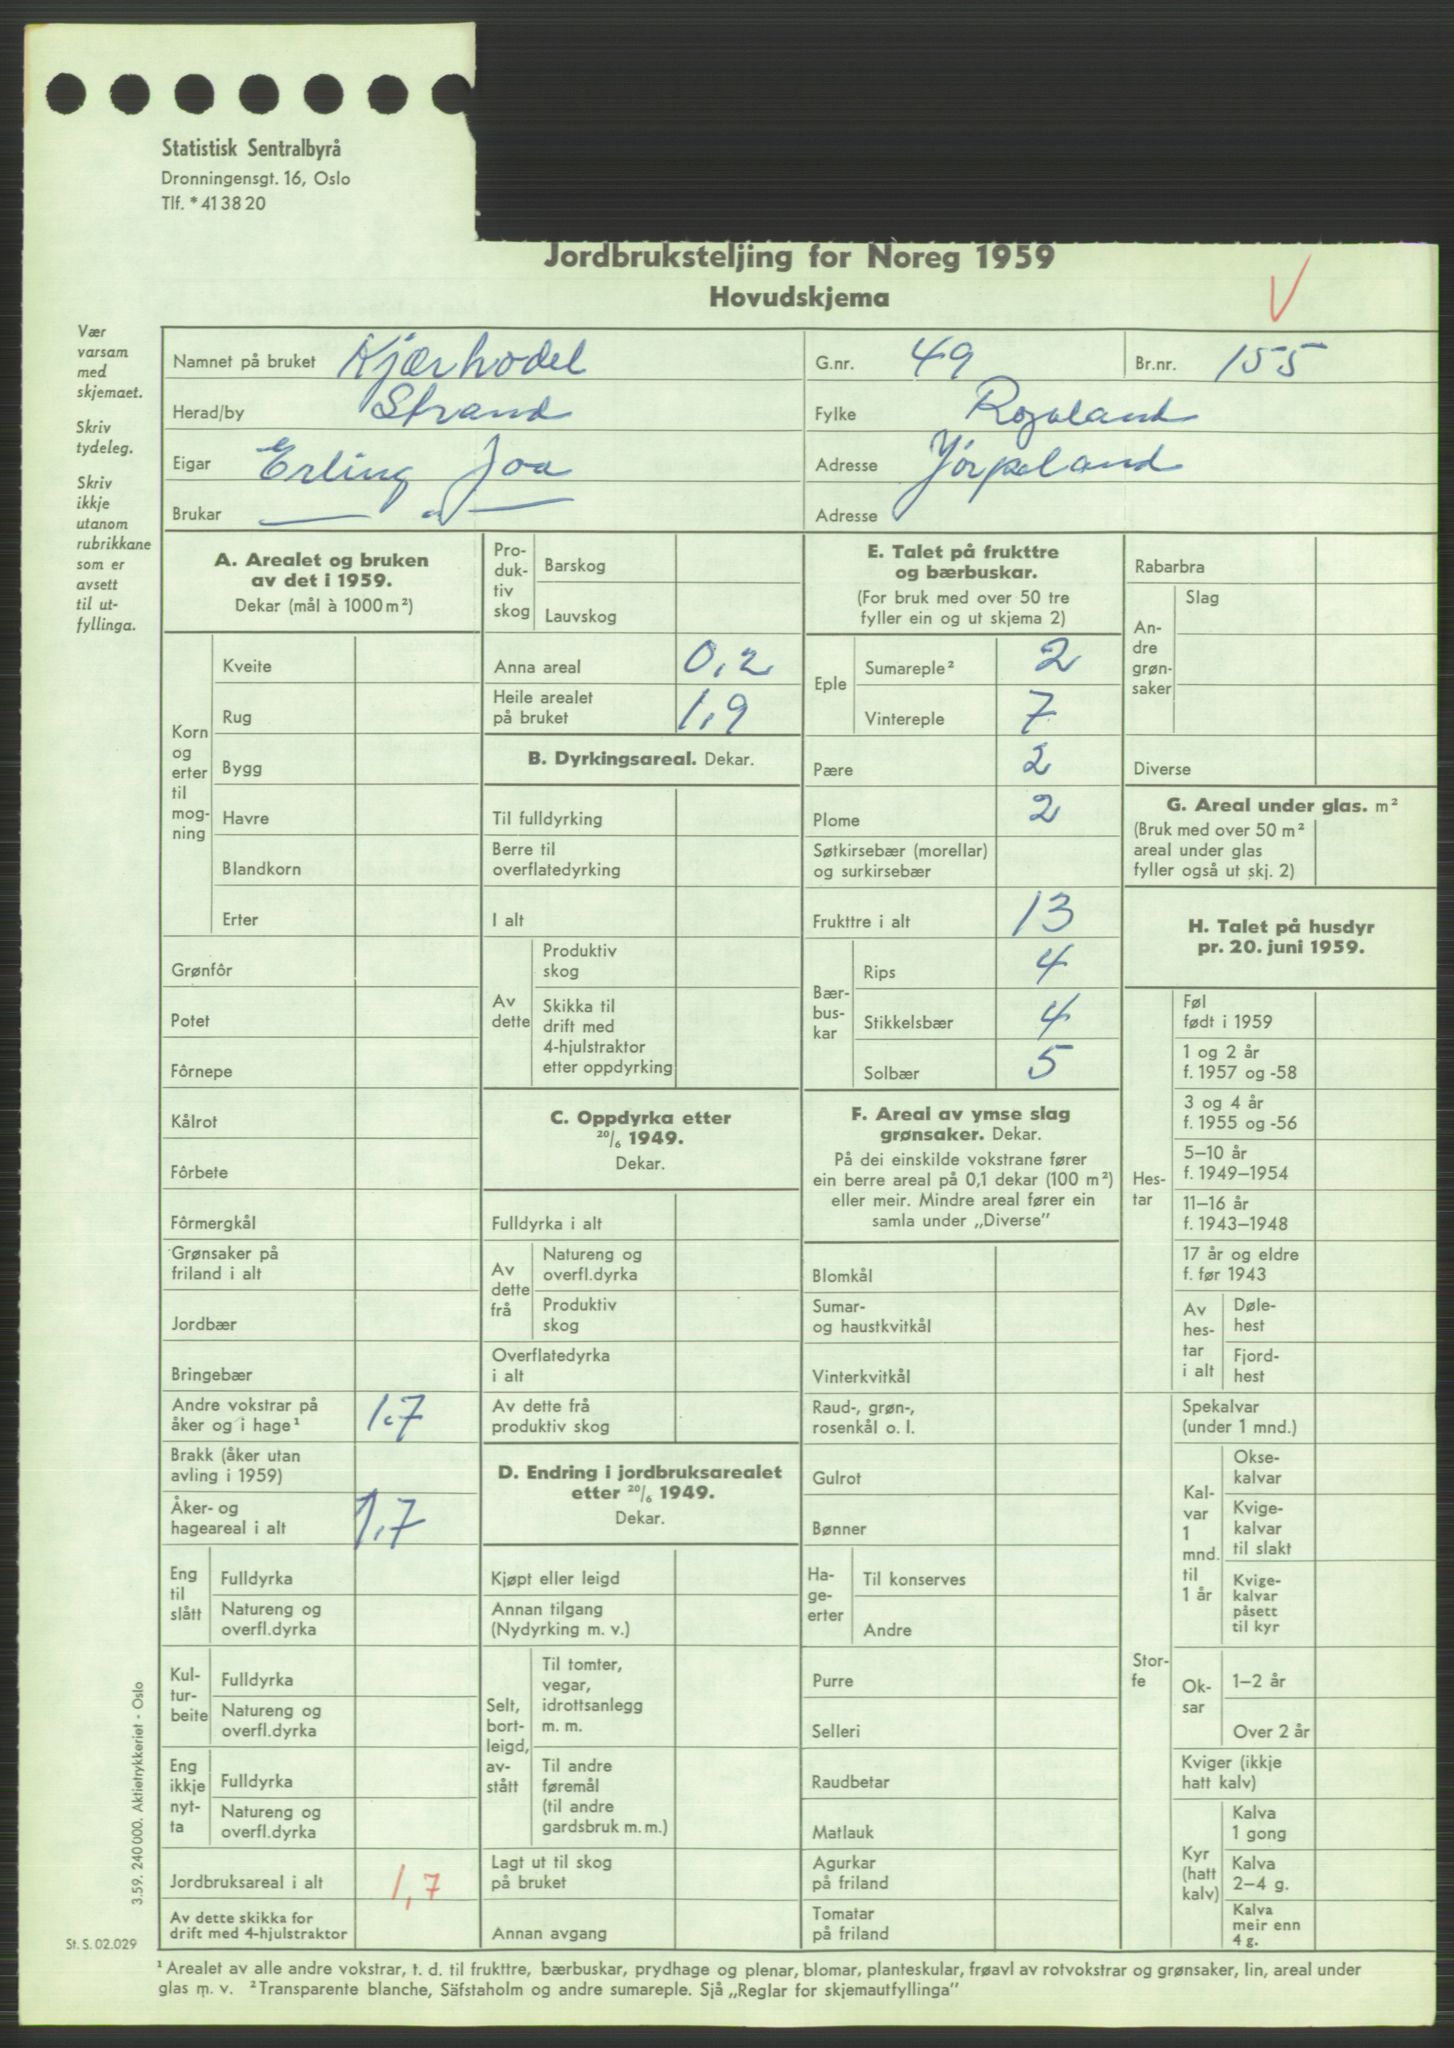 Statistisk Sentralbyrå
Dronningensgt. 16, Oslo
Tlf. * 41 38 20
Jordbruksteljing for Noreg 1959
Hovudskjema
Vær
varsam
med
skjemaet.
Skriv
tydeleg.
Skriv
ikkje
utanom
rubrikkane
som er
avsett
til ut-
fyllinga.
Namnet på bruket Kjærhodel G.nr. 49 Br.nr. 155
Herad/by Strand Fylke Rogaland
Eigar Erling Joa Adresse Jörpeland
Brukar — " — Adresse
A. Arealet og bruken
av det i 1959.
Dekar (mål à 1000 m²)
Korn
og
erter
til
mog-
ning
Kveite
Rug
Bygg
Havre
Blandkorn
Erter
Grønfôr
Potet
Fôrnepe
Kålrot
Fôrbete
Fôrmergkål
Grønsaker på
friland i alt
Jordbær
Bringebær
Andre vokstrar på
åker og i hage¹ 1.7
Brakk (åker utan
avling i 1959)
Åker- og
hageareal i alt 1,7
Eng
til
slått
Fulldyrka
Natureng og
overfl.dyrka
Kul-
tur-
beite
Fulldyrka
Natureng og
overfl.dyrka
Eng
ikkje
nyt-
ta
Fulldyrka
Natureng og
overfl.dyrka
Jordbruksareal i alt 1,7
Av dette skikka for
drift med 4-hjulstraktor
Pro-
duk-
tiv
skog
Barskog
Lauvskog
Anna areal 0,2
Heile arealet
på bruket 1,9
B. Dyrkingsareal. Dekar.
Til fulldyrking
Berre til
overflatedyrking
I alt
Av
dette
Produktiv
skog
Skikka til
drift med
4-hjulstraktor
etter oppdyrking
C. Oppdyrka etter
20/6 1949.
Dekar.
Fulldyrka i alt
Av
dette
frå
Natureng og
overfl.dyrka
Produktiv
skog
Overflatedyrka
i alt
Av dette frå
produktiv skog
D. Endring i jordbruksarealet
etter 20/6 1949.
Dekar.
Kjøpt eller leigd
Annan tilgang
(Nydyrking m. v.)
Selt,
bort-
leigd,
av-
stått
Til tomter,
vegar,
idrottsanlegg
m. m.
Til andre
føremål
(til andre
gardsbruk m. m.)
Lagt ut til skog
på bruket
Annan avgang
E. Talet på frukttre
og bærbuskar.
(For bruk med over 50 tre
fyller ein og ut skjema 2)
Eple
Sumareple² 2
Vintereple 7
Pære 2
Plome 2
Søtkirsebær (morellar)
og surkirsebær
Frukttre i alt 13
Bær-
bus-
kar
Rips 4
Stikkelsbær 4
Solbær 5
F. Areal av ymse slag
grønsaker. Dekar.
På dei einskilde vokstrane fører
ein berre areal på 0,1 dekar (100 m²)
eller meir. Mindre areal fører ein
samla under „Diverse”
Blomkål
Sumar-
og haustkvitkål
Vinterkvitkål
Raud-, grøn-,
rosenkål o. l.
Gulrot
Bønner
Ha-
ge-
erter
Til konserves
Andre
Purre
Selleri
Raudbetar
Matlauk
Agurkar
på friland
Tomatar
på friland
Rabarbra
An-
dre
grøn-
saker
Slag
Diverse
G. Areal under glas. m²
(Bruk med over 50 m²
areal under glas
fyller også ut skj. 2)
H. Talet på husdyr
pr. 20. juni 1959.
Hes-
tar
Føl
født i 1959
1 og 2 år
f. 1957 og -58
3 og 4 år
f. 1955 og -56
5–10 år
f. 1949–1954
11–16 år
f. 1943–1948
17 år og eldre
f. før 1943
Av
hes-
tar
i alt
Døle-
hest
Fjord-
hest
Stor-
fe
Spekalvar
(under 1 mnd.)
Kal-
var
1
mnd.
til
1 år
Okse-
kalvar
Kvige-
kalvar
til slakt
Kvige-
kalvar
påsett
til kyr
Ok-
sar
1–2 år
Over 2 år
Kviger (ikkje
hatt kalv)
Kyr
(hatt
kalv)
Kalva
1 gong
Kalva
2–4 g.
Kalva
meir enn
4 g.
3.59. 240 000. Aktietrykkeriet - Oslo
St. S. 02.029
¹ Arealet av alle andre vokstrar, t. d. til frukttre, bærbuskar, prydhage og plenar, blomar, planteskular, frøavl av rotvokstrar og grønsaker, lin, areal under
glas m. v. ² Transparente blanche, Säfstaholm og andre sumareple. Sjå „Reglar for skjemautfyllinga”